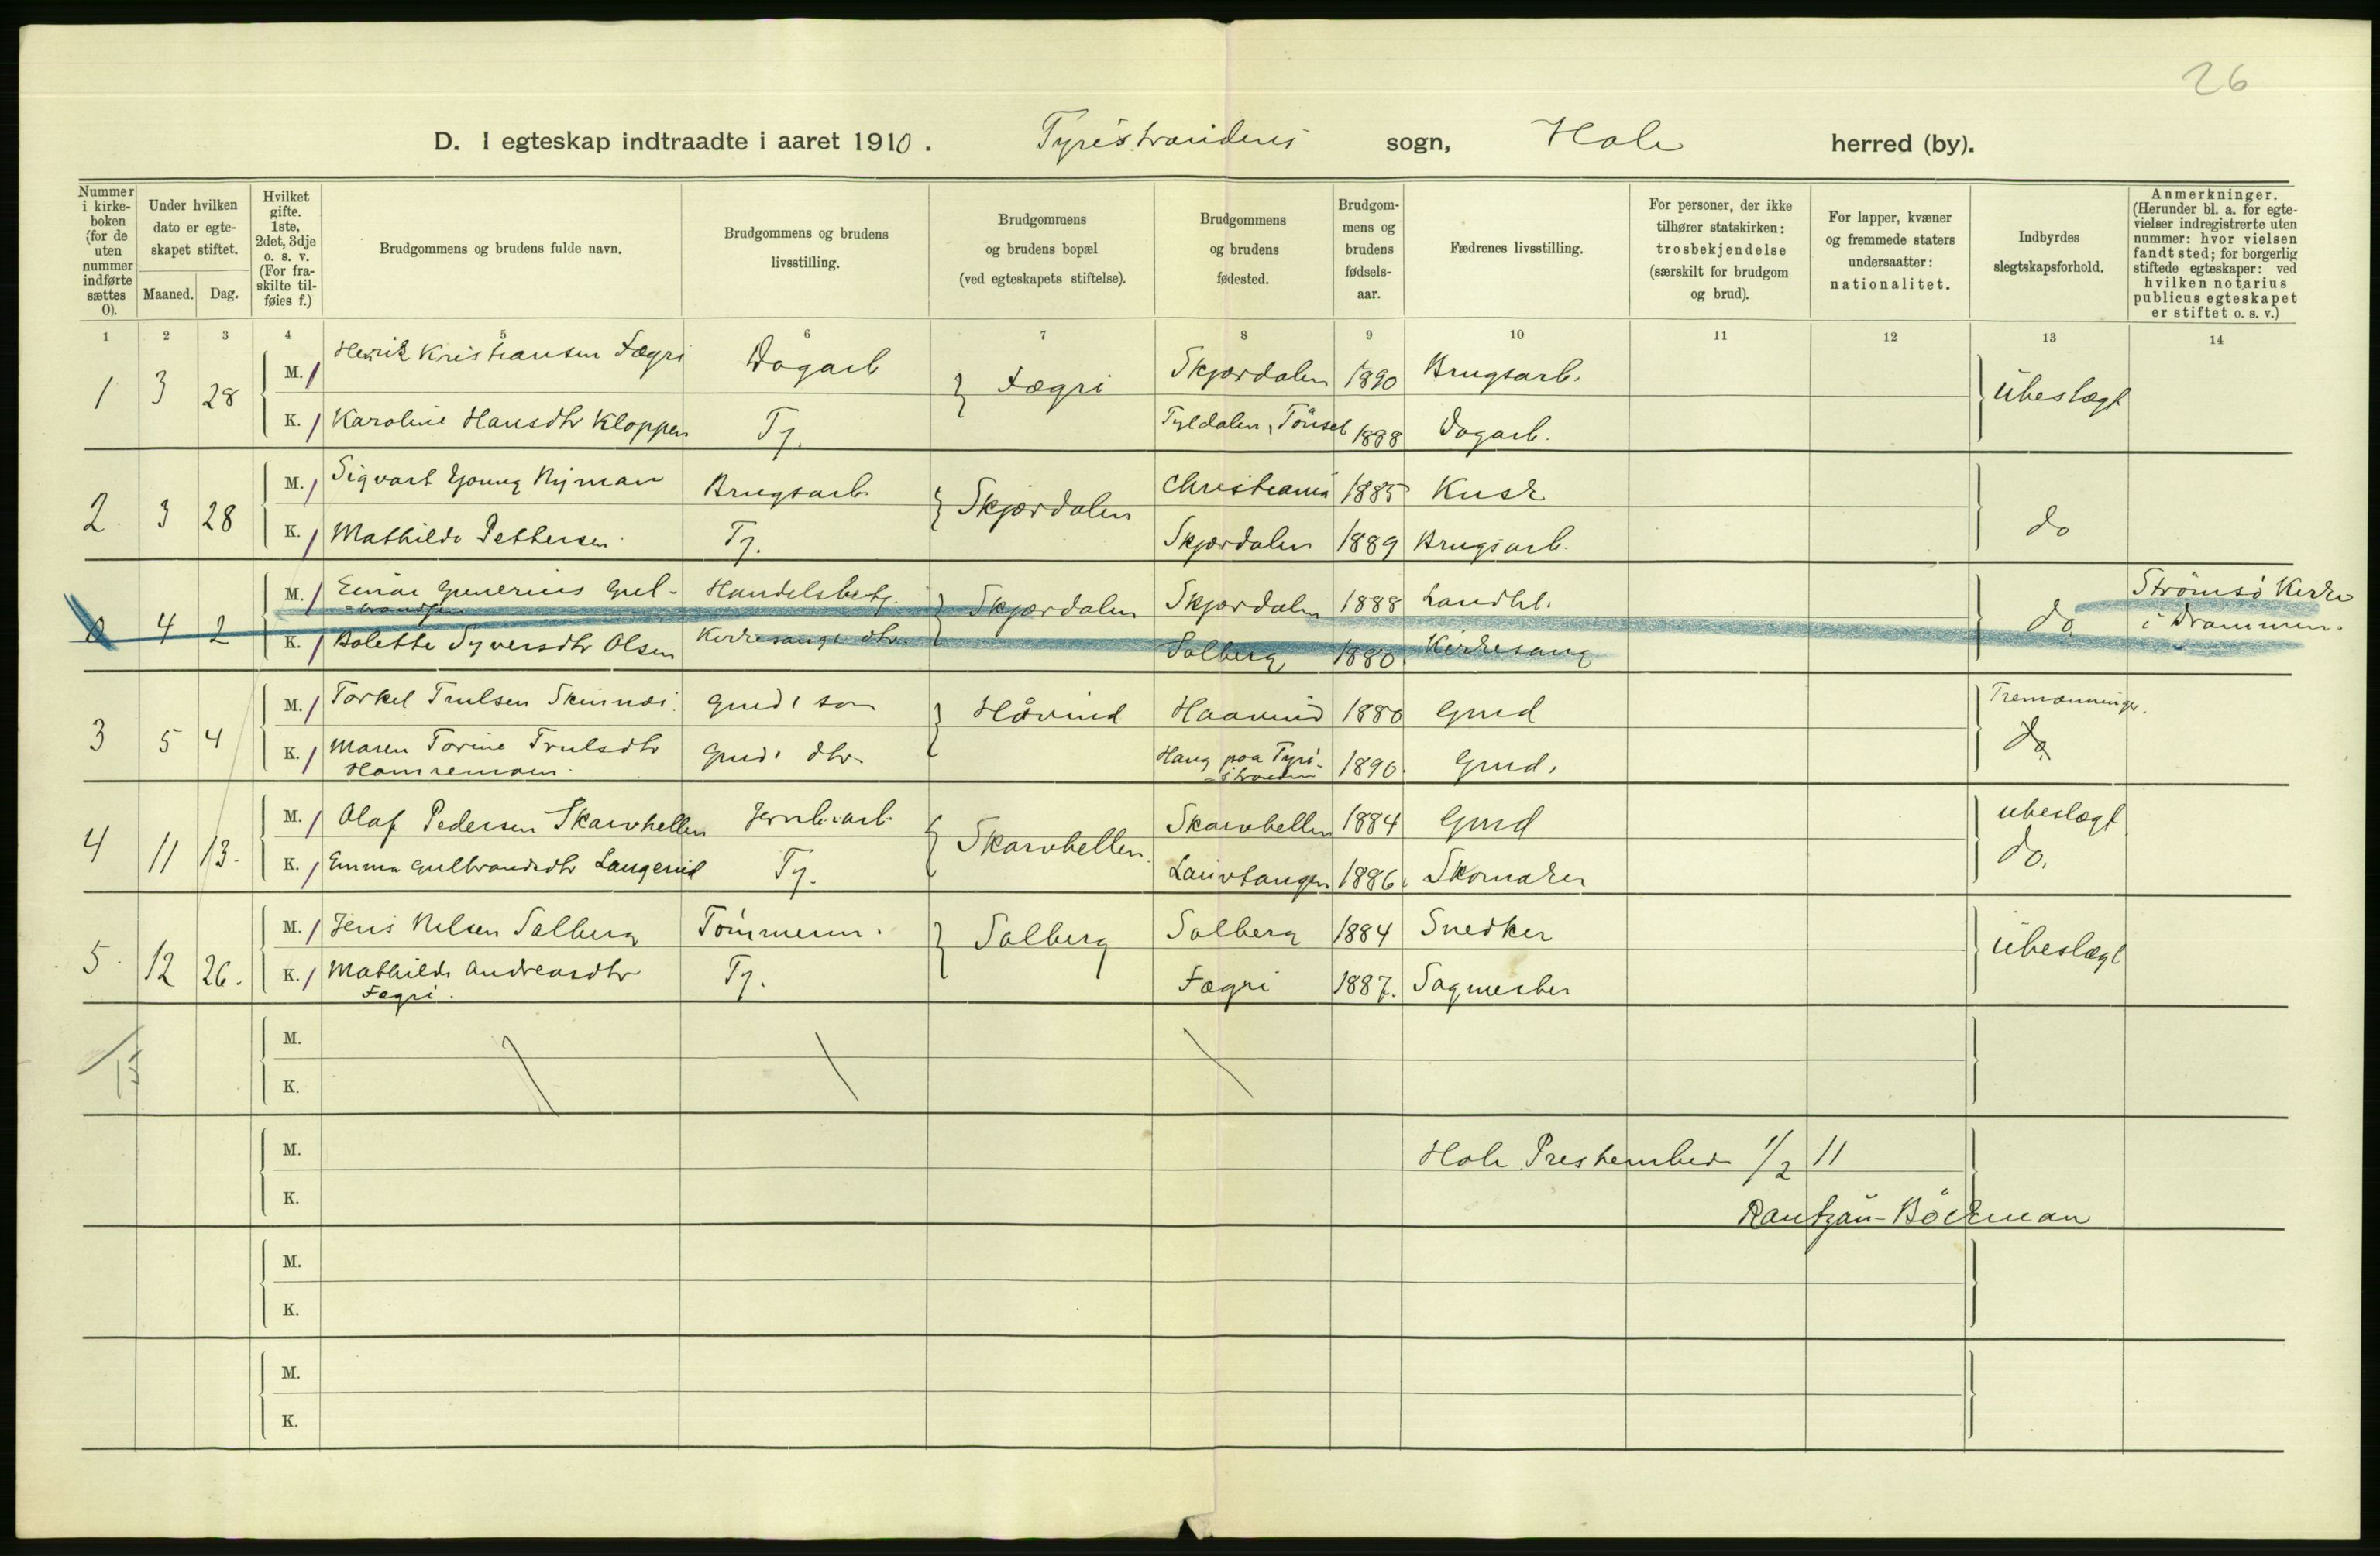 26
D. I egteskap indtraadte i aaret 1910. Tyristrandens sogn, Hole herred (by).
Nummer i kirke-boken (for de uten nummer indførte sættes 0).
Under hvilken dato er egte-skapet stiftet.
Maaned. Dag.
Hvilket gifte. 1ste, 2det, 3dje o. s. v. (For fra-skilte til-føies f.)
Brudgommens og brudens fulde navn.
Brudgommens og brudens livsstilling.
Brudgommens og brudens bopæl (ved egteskapets stiftelse).
Brudgommens og brudens fødested.
Brudgom-mens og brudens fødsels-aar.
Fædrenes livsstilling.
For personer, der ikke tilhører statskirken: trosbekjendelse (særskilt for brudgom og brud).
For lapper, kvæner og fremmede staters undersaatter: nationalitet.
Indbyrdes slegtskapsforhold.
Anmerkninger. (Herunder bl. a. for egte-vielser indregistrerte uten nummer: hvor vielsen fandt sted; for borgerlig stiftede egteskaper: ved hvilken notarius publicus egteskapet er stiftet o. s. v.)
1 2 3 4 5 6 7 8 9 10 11 12 13 14
1 3 28 M. / Henrik Kristiansen Fægri Dagarb } Fægri Skjærdalen 1890 Brugsarb. ubeslægt
K. / Karoline Hansdtr Kloppen Tj. Tyldalen, Tönset 1888 Dagarb.
2. 3 28 M. / Sigvart Young Nyman Brugsarb. } Skjærdalen Christiania 1885 Kusk do
K. / Mathilde Pettersen Tj. Skjærdalen 1889 Brugsarb.
0 4 2 M. / Einar Gunerius Gul-brandsen Handelsbetj. } Skjærdalen Skjærdalen 1888 Landhl. do Strömsö Kirke i Drammen.
K. / Bolette Syversdtr Olsen Kirkesangs dtr. Solberg 1880. Kirkesang
3 5 4 M. / Torkel Trulsen Skinnæs. Gmds søn } Håvind Haavind 1880 Gmd Tremænninger.
K. / Maren Torine Trulsdtr Hamremoen. Gmds dtr. Haug paa Tyri-stranden 1890. Gmd. do
4 11 13. M. / Olaf Pedersen Skarvhellen Jernb.arb. } Skarvhellen. Skarvhellen 1884 Gmd ubeslægt
K. / Emma Gulbrandsdtr Langerud Tj. Laurtangen 1886. Skomaker do.
5. 12 26. M. / Jens Nilsen Solberg Tømmerm. } Solberg Solberg 1884 Snedker ubeslægt
K. / Mathilde Andreasdtr Fægri. Tj. Fægri 1887. Sagmester
M.
K.
15
M. Hole Prestembede 1/2 11
K. Rantzau-Böckman
M.
K.
M.
K.